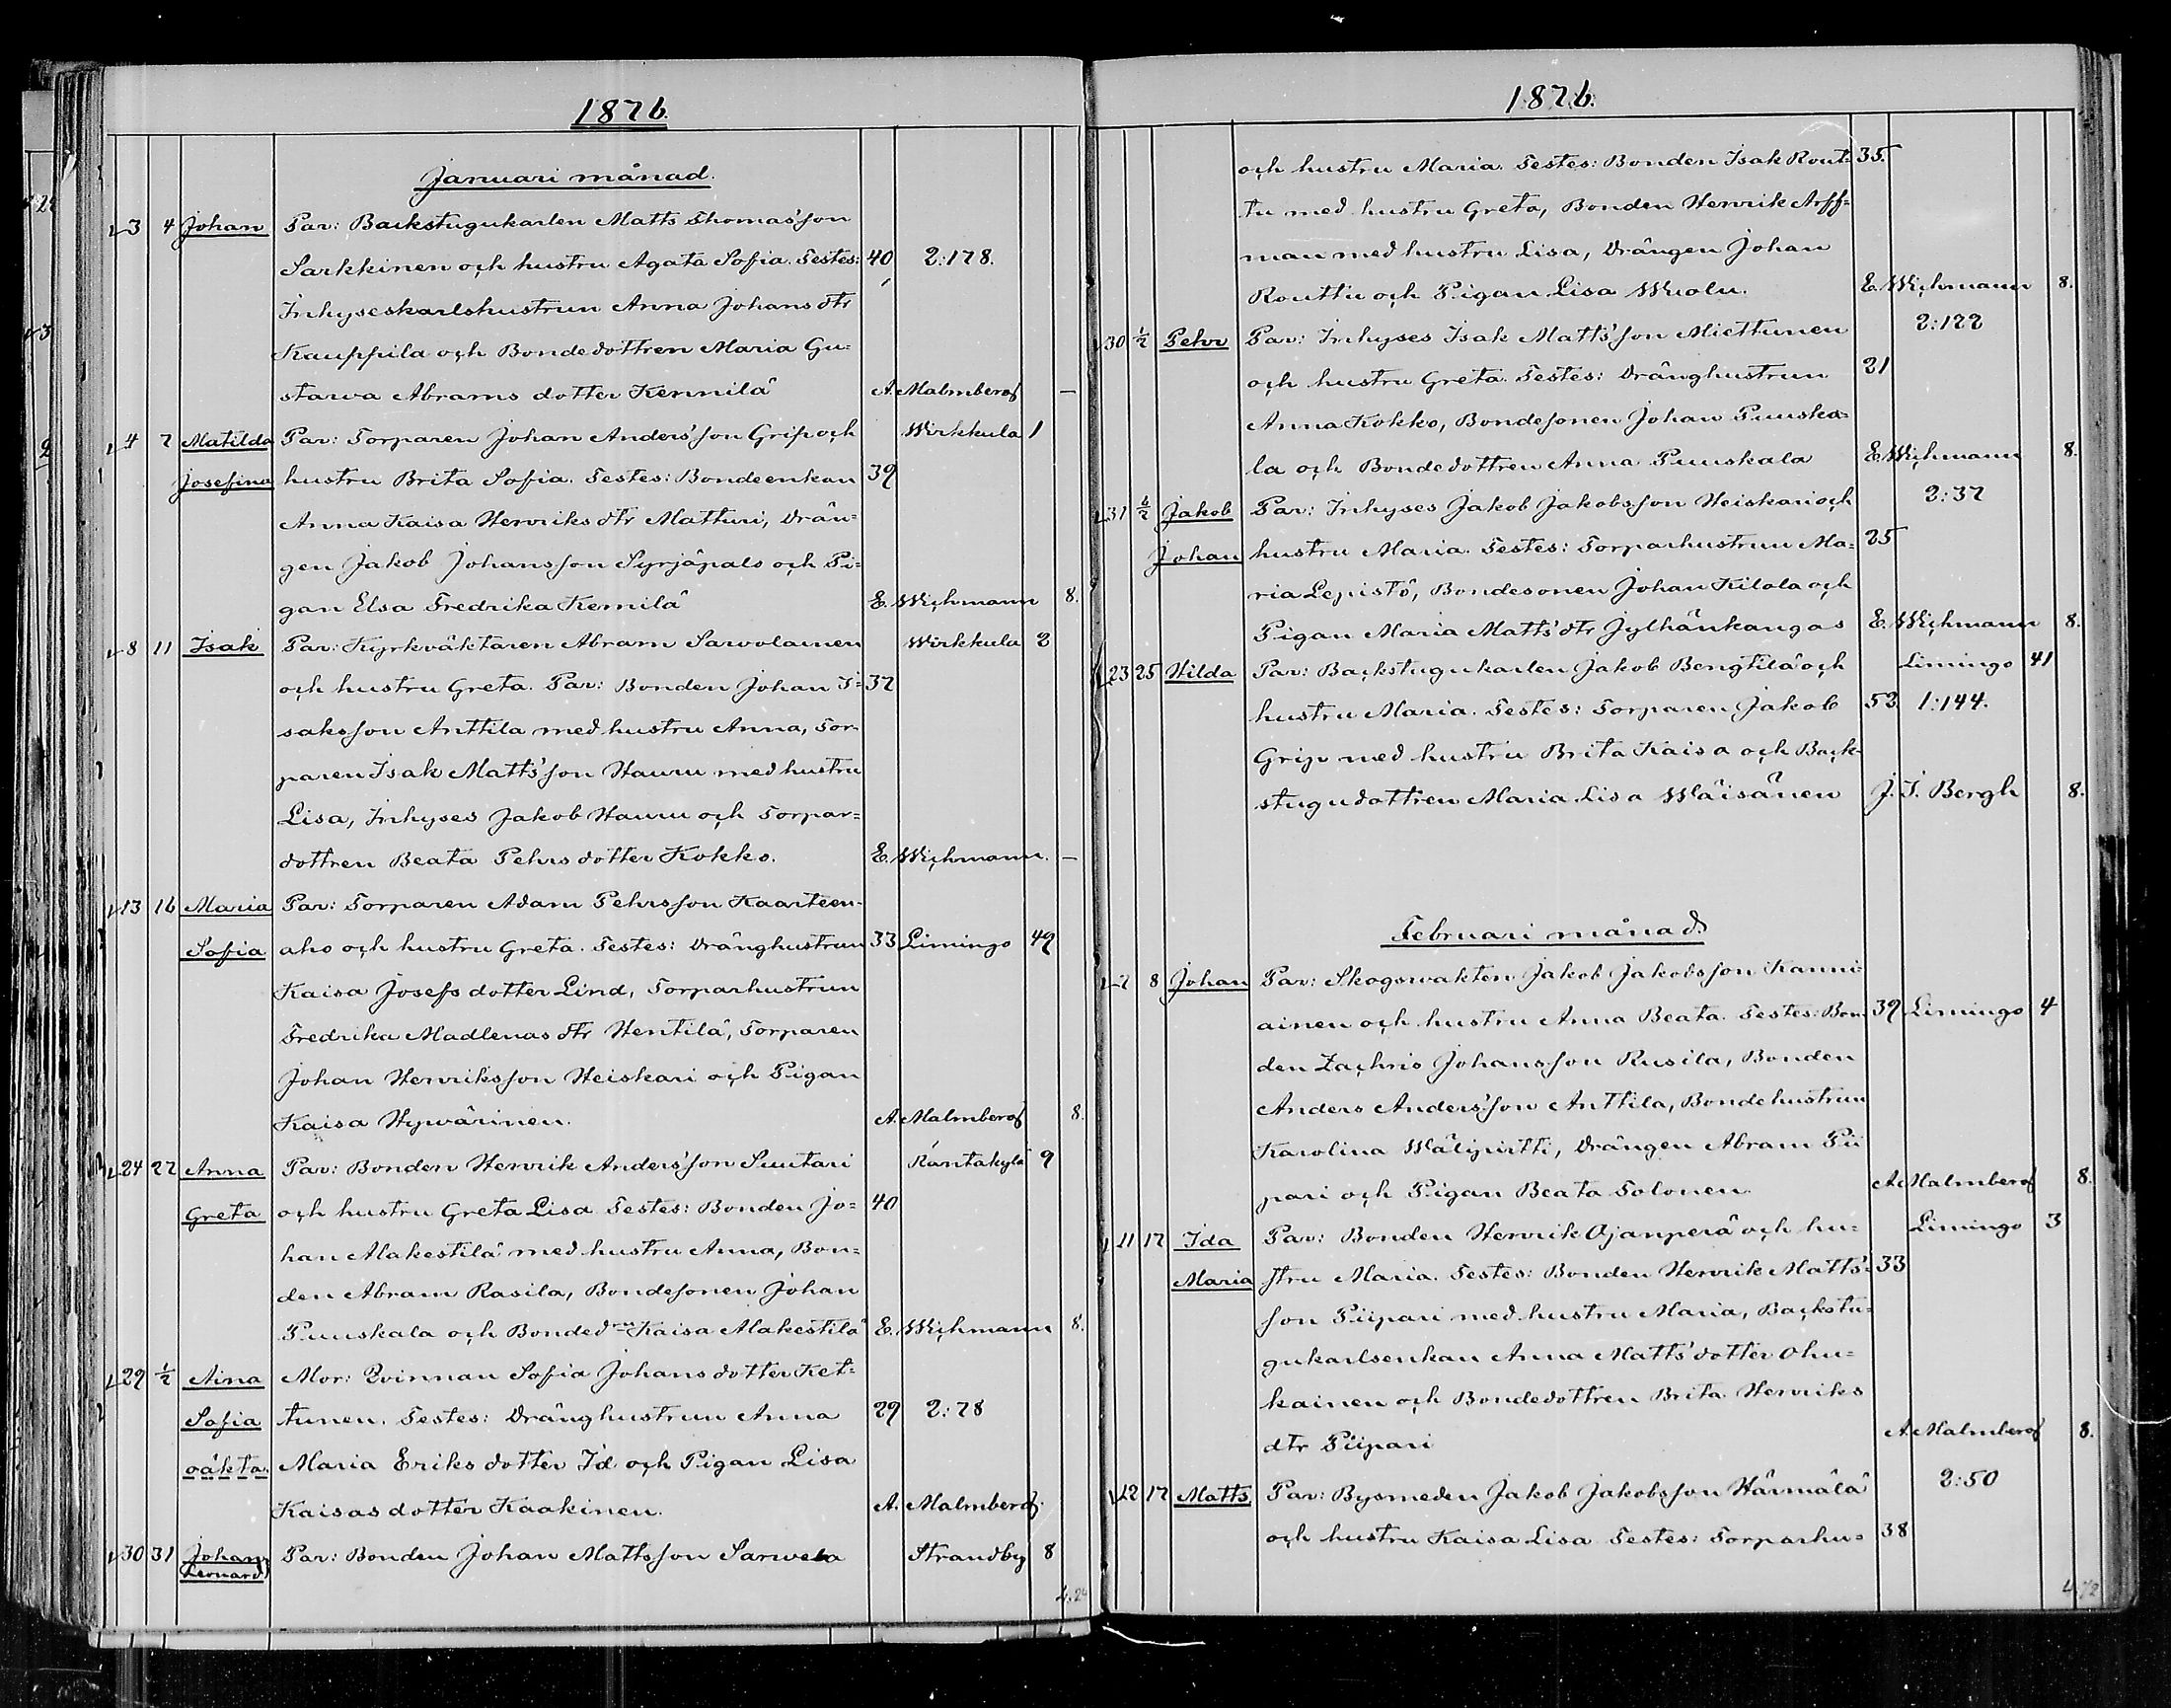 1876.
Januari månad.
3 4 Johan Par: Backstugukarlen Matts Thomas'son
Sarkkinen och hustru Agata Sofia. Testes: 40 2:178.
Inhyseskarlshustrun Anna Johans dtr
Kauppila och Bondedottren Maria Gu=
stawa Abrams dotter Kemilä A. Malmberg —
4 7 Matilda Par: Torparen Johan Anders'son Grip och Wirkkula 1
Josefina hustru Brita Sofia. Testes: Bondeenkan 39
Anna Kaisa Henriks dtr Matturi, Drän=
gen Jakob Johansson Syrjäpalo och Pi=
gan Elsa Fredrika Kemilä E. Wichmann 8.
8 11 Isak Par: Kyrkväktaren Abram Sarvolainen Wirkkula 2
och hustru Greta. Par: Bonden Johan I= 37
saksson Anttila med hustru Anna, Tor-
paren Isak Matts'son Hauru med hustru
Lisa, Inhyses Jakob Hauru och Torpar=
dottren Beata Pehrs dotter Kokko. E. Wichmann. —
13 16 Maria Par: Torparen Adam Pehrsson Kaarteen-
Sofia aho och hustru Greta. Testes: Dränghustrun 33 Limingo 49
Kaisa Josefs dotter Lind, Torparhustrun
Fredrika Madlenas dtr Hentilä, Torparen
Johan Henriksson Heiskari och Pigan
Kaisa Hyvärinen. A. Malmberg 8.
24 27 Anna Par: Bonden Henrik Anders'son Suutari Rantakylä 9
Greta och hustru Greta Lisa Testes: Bonden Jo= 40
han Alakestilä med hustru Anna, Bon=
den Abram Rasila, Bondesonen Johan
Puuskala och Bonded:n Kaisa Alakestilä E. Wichmann 8.
29 1/2 Aina Mor: Qvinnan Sofia Johans dotter Ket=
Sofia tunen. Testes: Dränghustrun Anna 29 2:78
oäkta. Maria Eriks dotter Id och Pigan Lisa
Kaisas dotter Kaakinen. A. Malmberg.
30 31 Johan Par: Bonden Johan Mattsson Sarwela Strandby 8
Leonard
1876.
och hustru Maria. Testes: Bonden Isak Rout= 35.
tu med hustru Greta, Bonden Henrik Arff=
man med hustru Lisa, Drängen Johan
Routtu och Pigan Lisa Wuolu. E. Wichmann 8.
30 1/2 Pehr Par: Inhyses Isak Matts'son Miettunen 2:122
och hustru Greta. Testes: Dränghustrun 21
Anna Kokko, Bondesonen Johan Puuska=
la och Bondedottren Anna Puuskala E. Wichmann 8.
31 6/2 Jakob Par: Inhyses Jakob Jakobsson Heiskari och 2:37
Johan hustru Maria. Testes: Torparhustrun Ma= 25
ria Lepistö, Bondesonen Johan Kilola och
Pigan Maria Matts' dtr Jylhänkangas E. Wichmann 8.
23 25 Hilda Par: Backstugukarlen Jakob Bengtilä och Limingo 41
hustru Maria. Testes: Torparen Jakob 52 1:144.
Grip med hustru Brita Kaisa och Back-
stugudottren Maria Lisa Wäisänen J. I. Bergh 8.
Februari månad
7 8 Johan Par: Skogswakten Jakob Jakobsson Kanni=
ainen och hustru Anna Beata. Testes: Bon 39 Limingo 4
den Zachris Johansson Rusila, Bonden
Anders Anders'son Anttila, Bondehustrun
Karolina Wälipirtti, Drängen Abram Pii
pari och Pigan Beata Tolonen. A. Malmberg 8.
11 17 Ida Par: Bonden Henrik Ojanperä och hu= Limingo 3
Maria stru Maria. Testes: Bonden Henrik Matts'= 33
son Piipari med hustru Maria, Backstu=
gukarlsenkan Anna Matts' dotter Ohu=
kainen och Bondedottren Brita Henriks
dtr Piipari A. Malmberg 8.
12 17 Matts Par: Bysmeden Jakob Jakobsson Härmälä 2:50
och hustru Kaisa Lisa Testes: Torparhu= 38